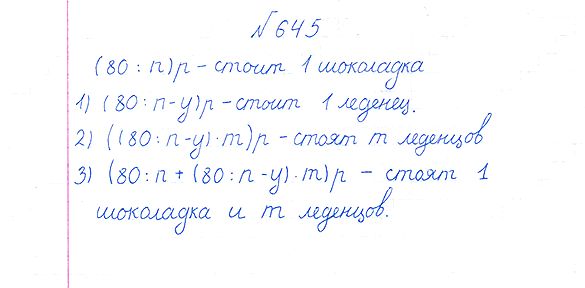 №645
(80 : n)р - стоит 1 шоколадка
1) (80 : n - y)р - стоит 1 леденец.
2) ((80 : n - y) · m)р - стоят m леденцов
3) (80 : n + (80 : n - y) · m)р - стоят 1
шоколадка и m леденцов.